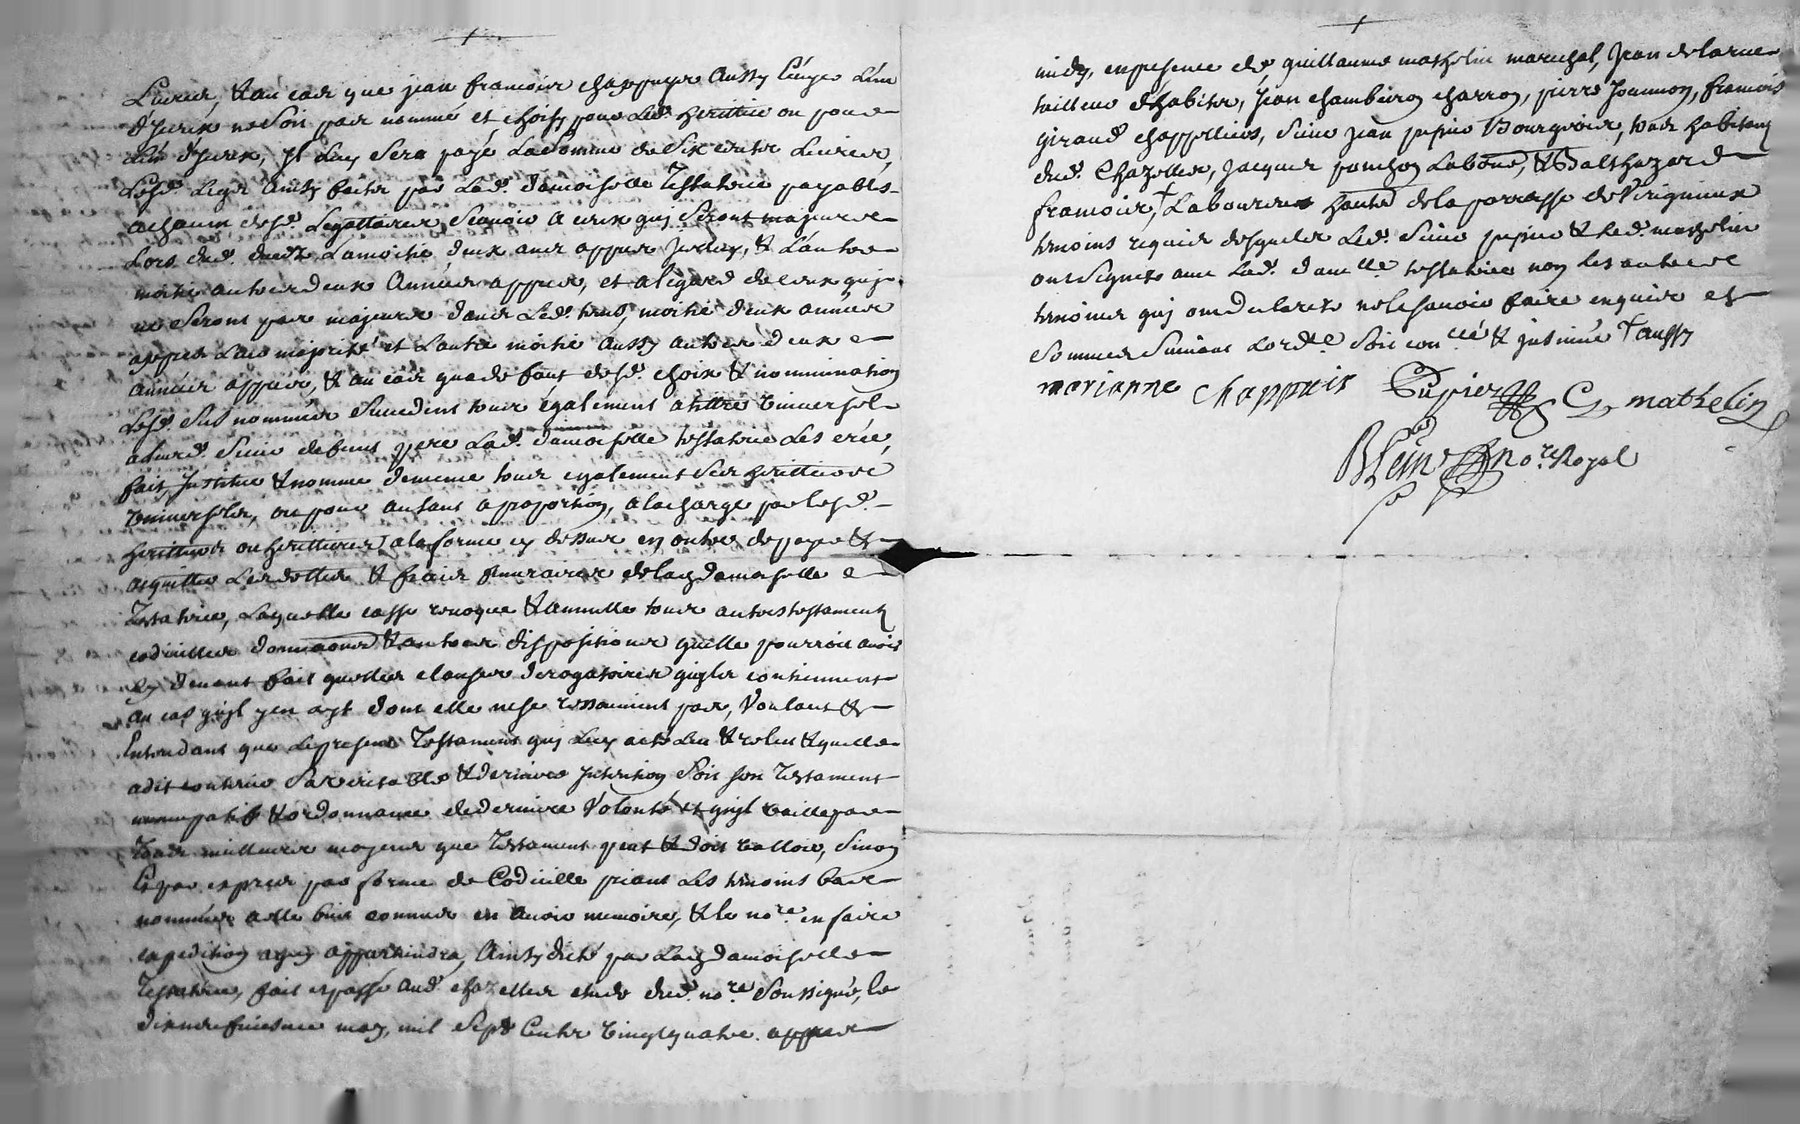 Livres, & au cas que jean francois chappuys Aussy
d'yceux ne soit pas nommé et choisy pour led. herittier ou pour
d'yceux, Jl luy sera payé La somme de six cents Livres,
Lesd. legs Ainsy faits par lad. damoiselle Testatrice payables
a chacun desd. Legattaires, scavoir a ceux quy seront majeurs
Lors dud. deceds, La moitié deux ans appres jceluy, & L'autre
moitié autres deux Années appres, et a legard de ceux quy
ne seront pas majeurs dans led. temps, moitié deux années
appres leur majorité et Lautre moitié aussy autres deux
années appres, & au cas qua defaut desd. choix & nomination
Lesd. sus nommés succedent tous egalement a tiltre universel
aud. sieur defunt pere Lad. damoiselle testatrice Les crée,
fait, Jnstitue & nomme de meme tous egalement ses herittiers
Universels, ou pour autant a proportion, a la charge par lesd.
herittiers ou herittieres, a la forme cy dessus en outre de payer &
acquitter Les dettes & frais funeraires de lad. damoiselle
Testatrice, Laquelle casse revoque & annulle tous autres testaments
codicilles donnations & autres dispositions quelle pourroit avoir
cy devant fait quelles clauses derogatoires quyls contiennent
au cas quyl y en ayt dont elle ne se ressouvient pas, Voulant &
Entendant que Le present Testament quy Luy a eté Leu & releu & quelle
a dit contenir sa veritable & derniere jntention soit son Testament
nuncupatif & ordonnance de derniere Volonté et quyl vaille par
Tous meilleurs moyens que Testament peut & doit valloir, sinon
par expres par forme de Codicille priant Les temoins bas
nommés a elle bien connus en avoir memoire, & le no.re en faire
expedition a quy appartiendra, Ainsy dicté par Lad. damoiselle
Testatrice, fait et passé aud. chazelles etude dud. no.re soussigné, le
may, mil sept Cents vingt quatre appres
midy, en presence de guillaume mathelin marechal, Jean delarue
tailleur d'habits, Jean chambeiron charron, pierre Joannon, francois
giraud chappelliers, sieur jean pupier Bourgeois, tous habitants
dud. Chazelles, jacques ponchon Laboureur, & Balthazard
francois,+ Laboureur habitants de la parroisse de Virignieux
temoins requis desquels Led. sieur pupier & led. mathelin
ont signés avec Lad. dam.lle testatrice non les autres
temoins quy ont declarés ne le scavoir faire enquis et
sommés suivant Lord.ce soit con.llé & jnsinué + aussy
marianne chappuis Pupier G. mathelin
no.re Royal